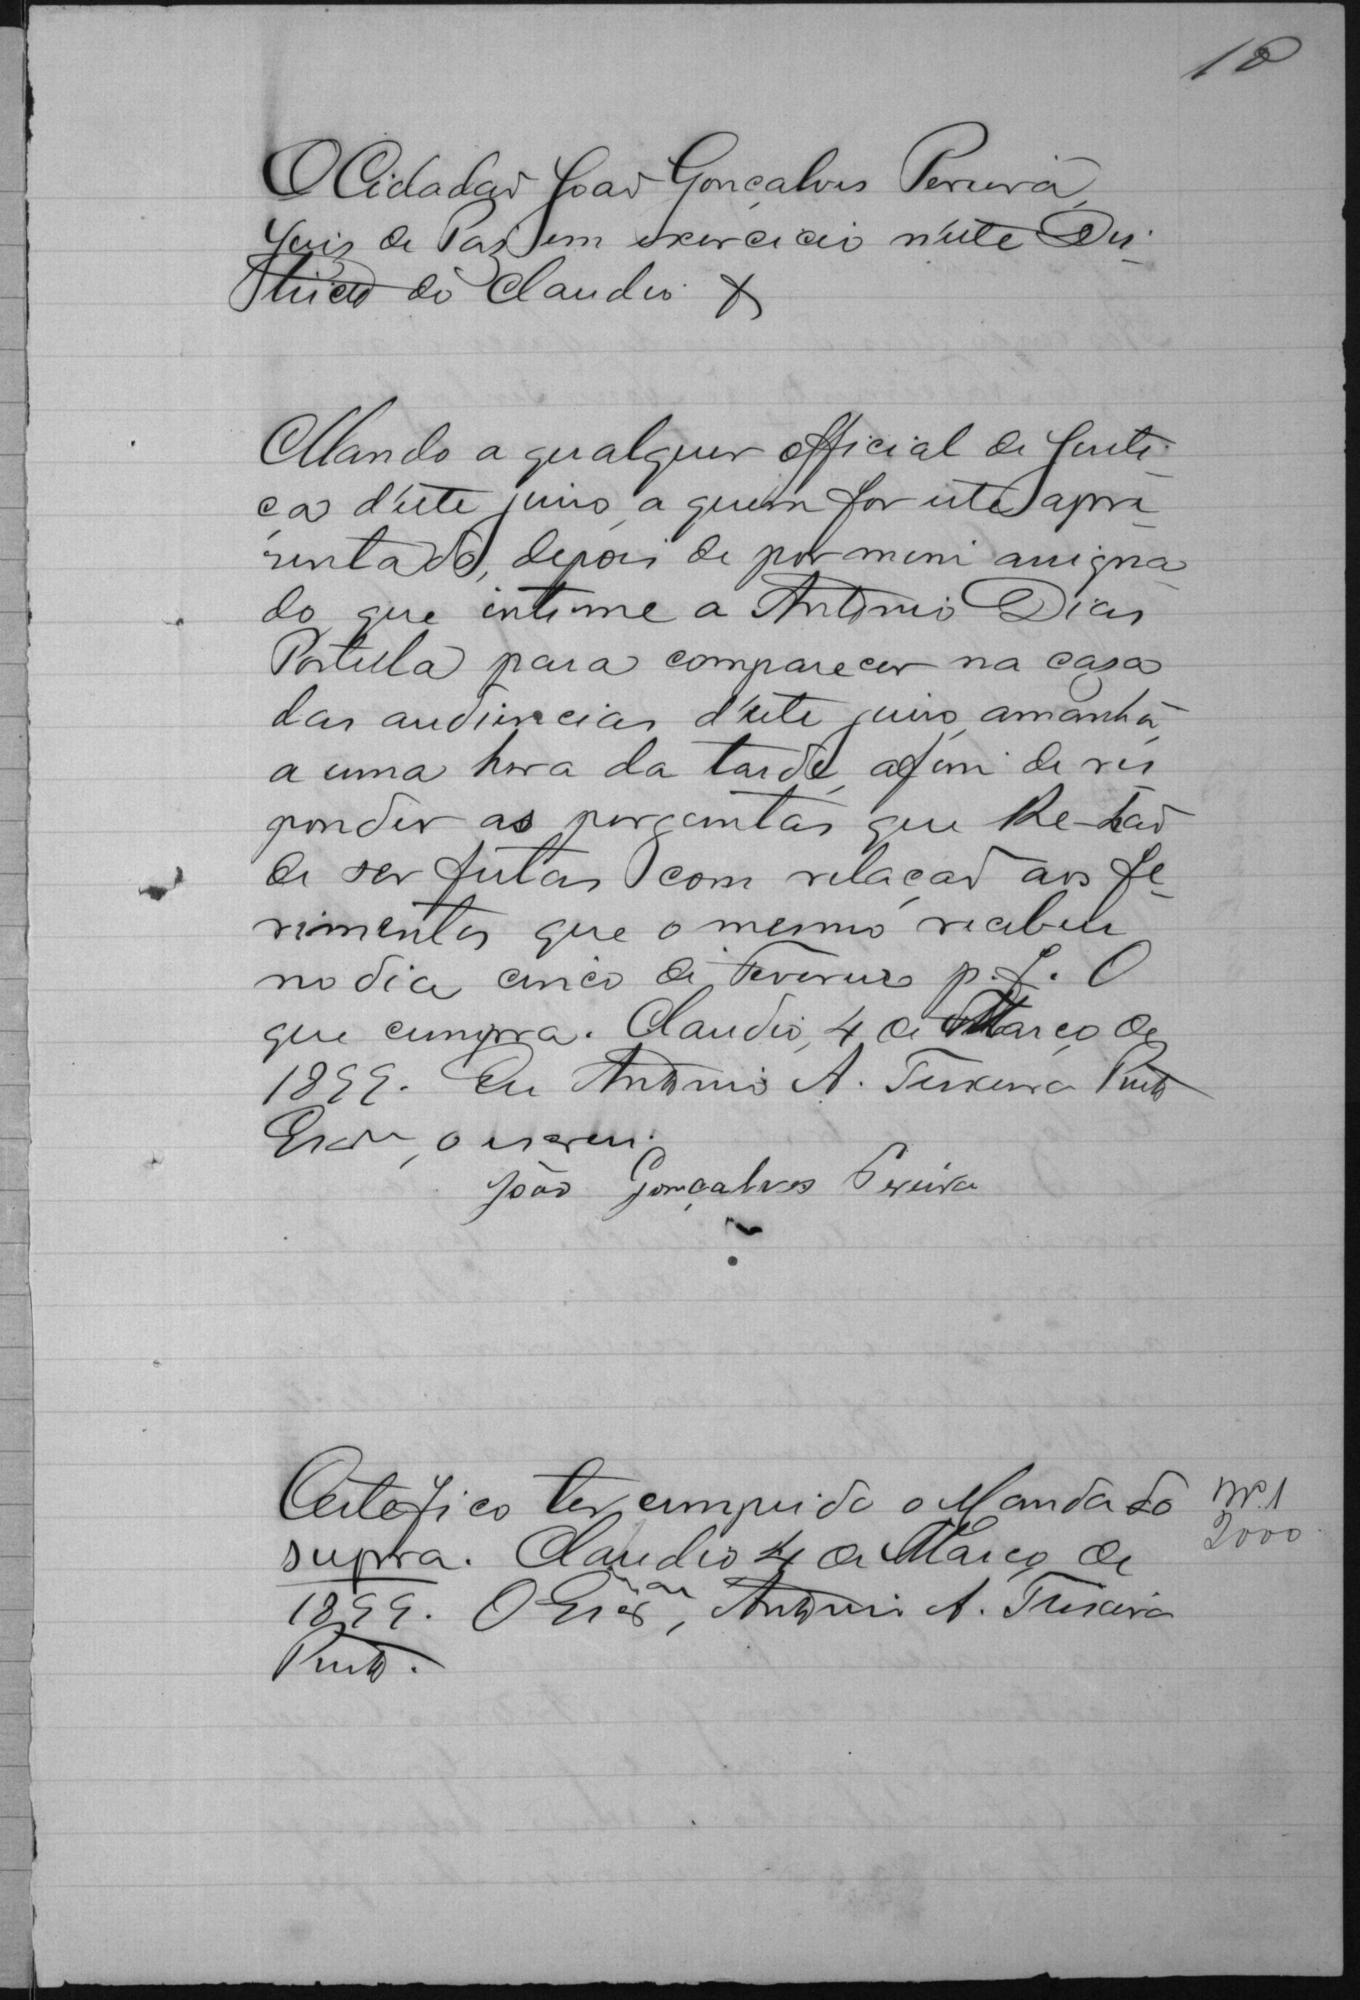 10
O Cidadão João Gonçalves Pereira,
Juiz de Paz em exercicio n'este Dis-
tricto do Claudio &
Mando a qualquer official de Justi-
ça d'este juizo, a quem for este apre-
sentado, depois de por mim assigna-
do que intime a Antonio Dias
Portella para comparecer na casa
das audiencias d'este juizo, amanhã,
a uma hora da tarde, afim de res-
ponder as perguntas que lhe hão
de ser feitas com relação aos fe-
rimentos que o mesmo recebeu
no dia cinco de Fevereiro p. f. O
que cumpra. Claudio, 4 de Março de
1899. Eu Antonio A. Teixeira Pinto
Escr.am, o escrevi.
João Gonçalves Pereira
Certefico ter cumprido o Mandado
supra. Claudio 4 de Março de
1899. O Escram, Antonio A. Teixeira
Pinto.
Nº. 1
2000